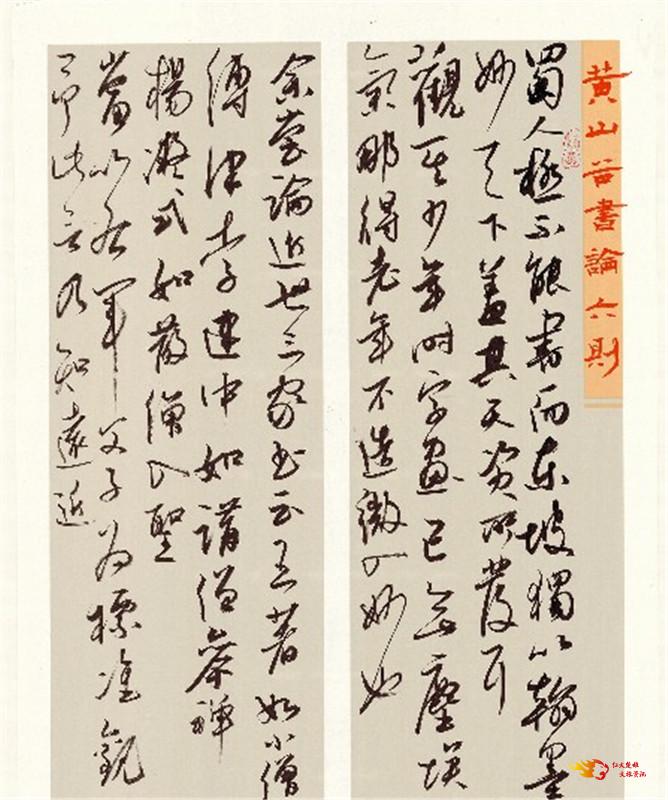 黄山谷書論六則
蜀人極不能書而東坡獨以翰墨
妙天下蓋其天資所發耳
觀其少年時字畫已無塵埃
氣那得老年不造微入妙也
余嘗論近世三家書云王著如小僧
縛律李建中如講僧參禪
楊凝式如散僧入聖
當以右軍父子為標準觀
予此言乃知遠近
文旅资讯